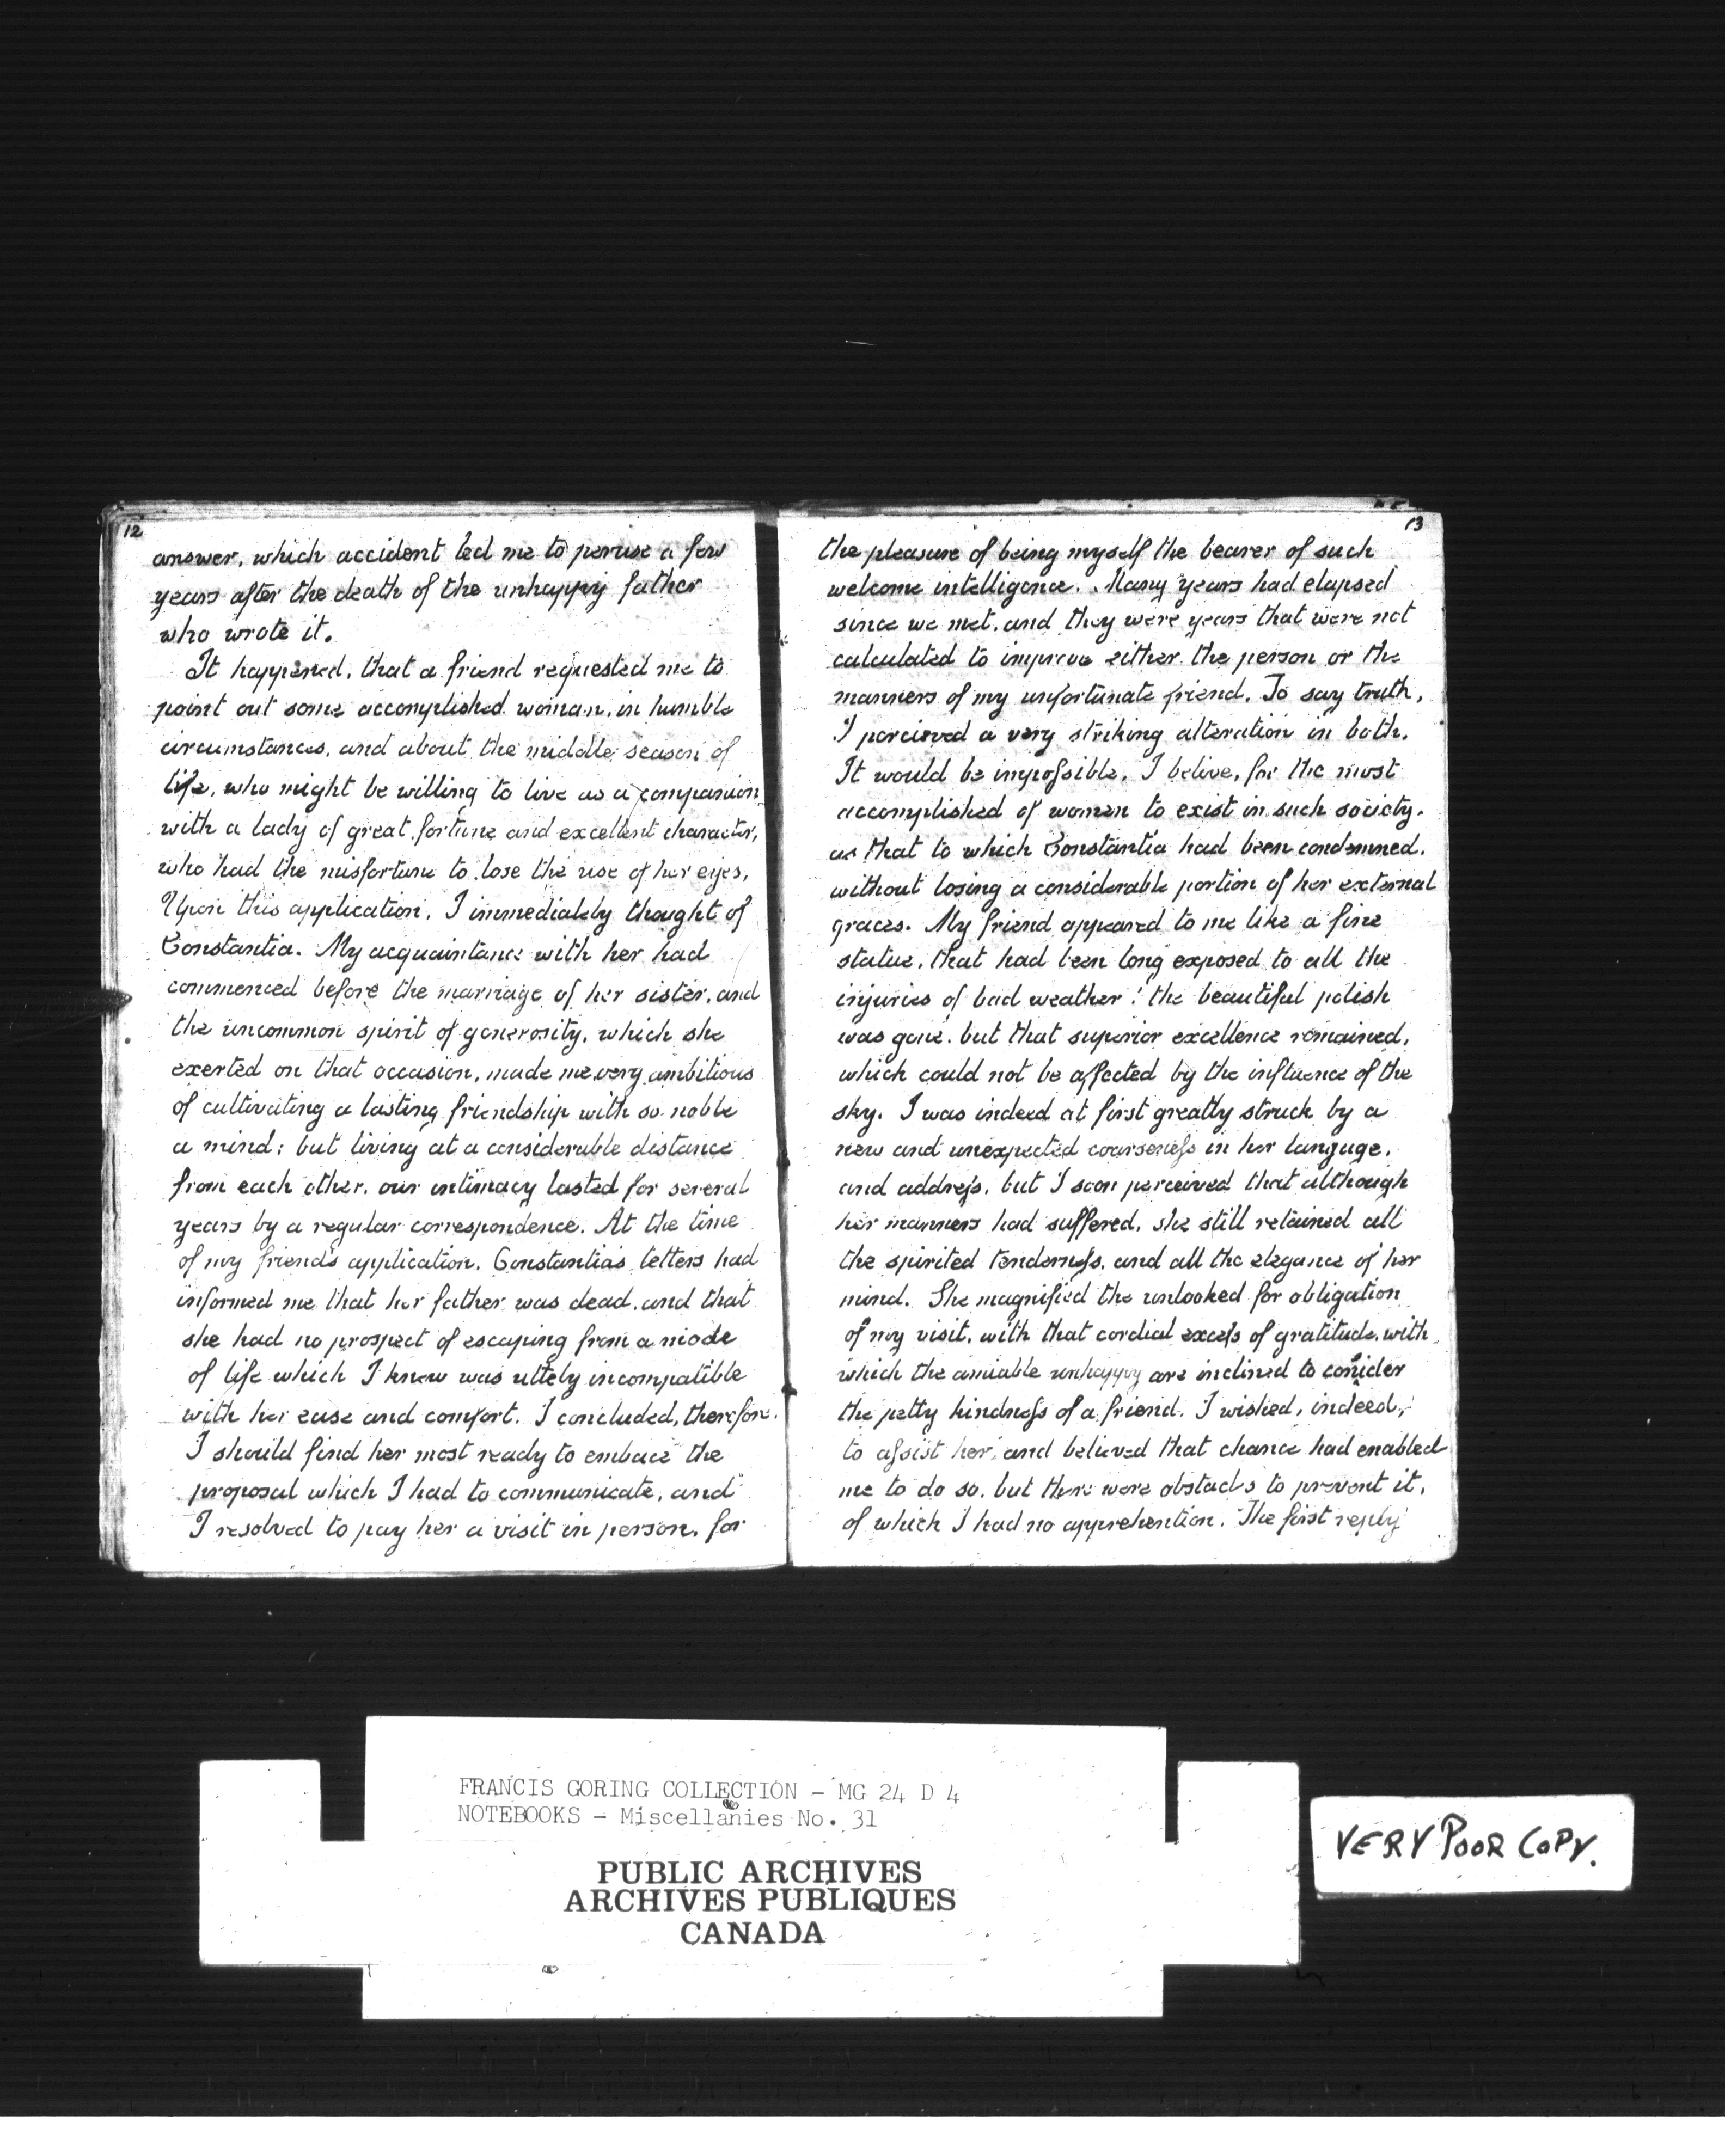 12
answer, which accident led me to peruse a few
years after the death of the unhappy father
who wrote it.
It happened, that a friend requested me to
point out some accomplished woman, in humble
circumstances, and about the middle season of
life, who might be willing to live as a companion
with a lady of great fortune and excellent character,
who had the misfortune to lose the use of her eyes,
Upon this application, I immediately thought of
Constantia. My acquaintance with her had
commenced before the marriage of her sister, and
the uncommon spirit of generosity, which she
exerted on that occasion, made me very ambitious
of cultivating a lasting friendship with so noble
a mind; but living at a considerable distance
from each other, our intimacy lasted for several
years by a regular correspondence. At the time
of my friend's application, Constantia's letters had
informed me that her father was dead, and that
she had no prospect of escaping from a mode
of life which I knew was uttely incompatible
with her ease and comfort. I concluded, therefore,
I should find her most ready to embace the
proposal which I had to communicate, and
I resolved to pay her a visit in person, for
13
the pleasure of being myself the bearer of such
welcome intelligence. Many years had elapsed
since we met, and they were years that were not
calculated to improve either the person or the
manners of my unfortunate friend. To say truth,
I percieved a very striking alteration in both.
It would be impossible, I belive, for the most
accomplished of women to exist in such society,
as that to which Constantia had been condemned,
without losing a considerable portion of her external
graces. My friend appeared to me like a fine
statue, that had been long exposed to all the
injuries of bad weather; the beautiful polish
was gone, but that superior excellence remained,
which could not be affected by the influence of the
sky. I was indeed at first greatly struck by a
new and unexpected coarseness in her languge,
and address, but I soon perceived that although
her manners had suffered, she still retained all
the spirited tenderness, and all the elegance of her
mind. She magnified the unlooked for obligation
of my visit, with that cordial excess of gratitude, with
which the amiable unhappy are inclined to consider
the petty kindness of a friend. I wished, indeed,
to assist her, and believed that chance had enabled
me to do so, but there were obstacls to prevent it,
of which I had no apprehention. The first reply
FRANCIS GORING COLLECTION - MG 24 D 4
NOTEBOOKS - Miscellanies No. 31
PUBLIC ARCHIVES
ARCHIVES PUBLIQUES
CANADA
VERY POOR COPY.